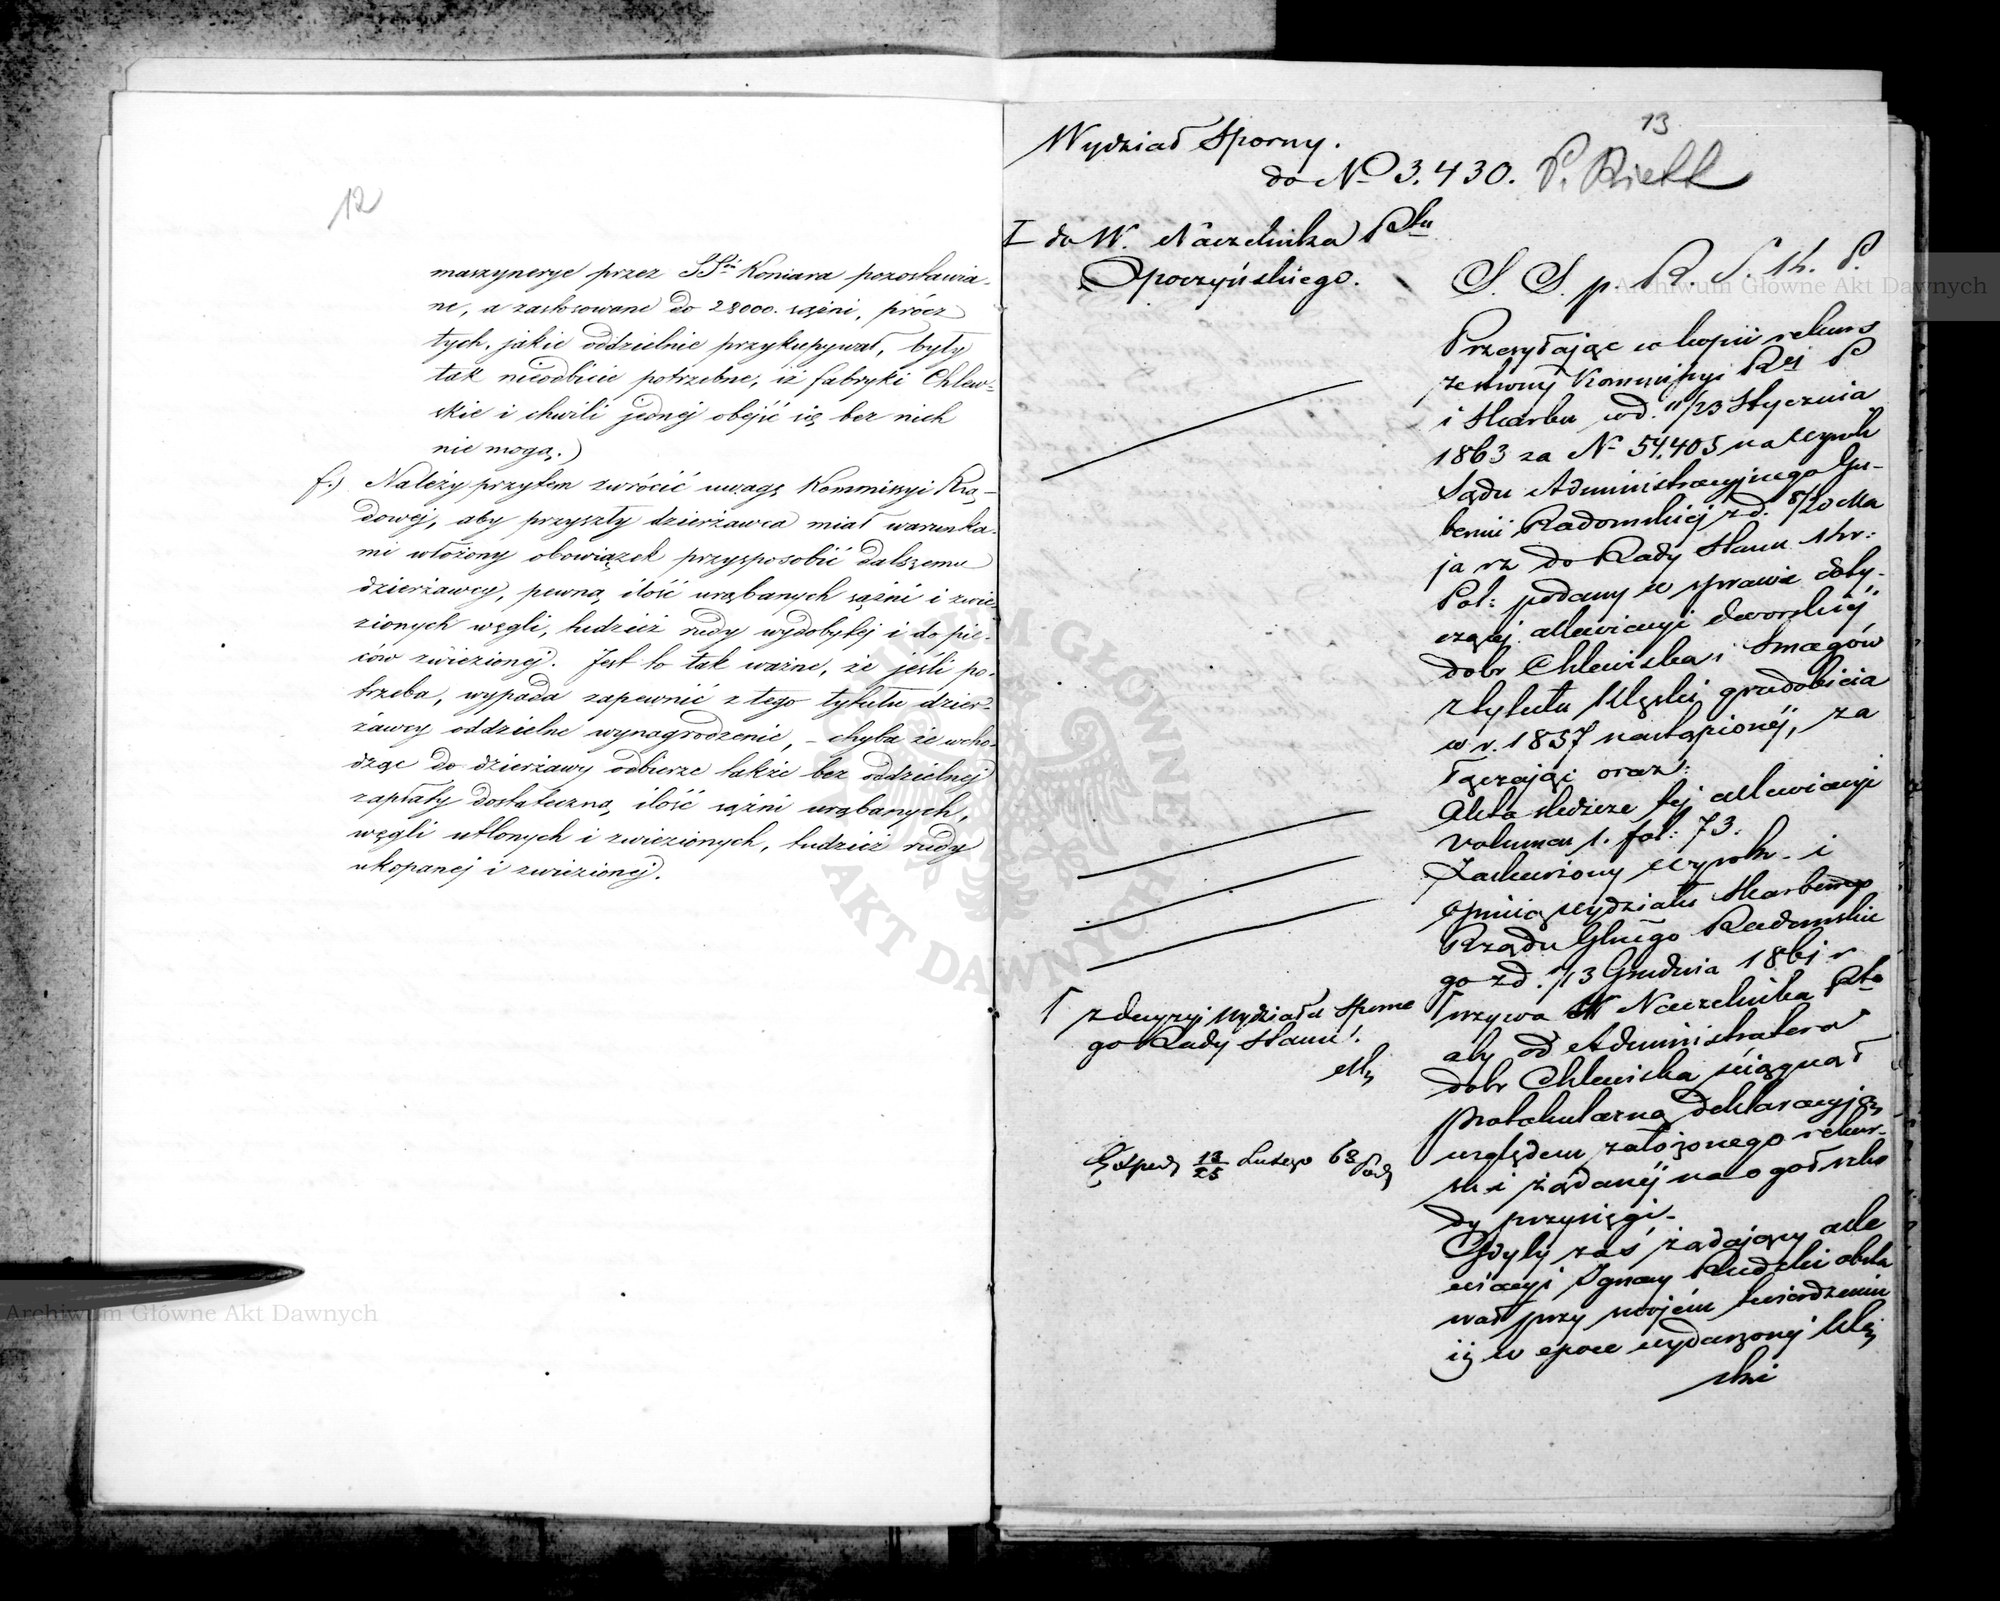 12
maszynerye przez SSrů Koniara pozostawia-
ne, a zastosowane do 28000. sążni, prócz
tych, jakie oddzielnie przykupywał, były
tak nieodbicie potrzebne, iż fabryki Chlew-
skie i chwili jednej obejść się bez nich
nie mogą.)
f.) Należy przytem zwrócić uwagę Kommissyi Rzą-
dowej, aby przyszły dzierżawca miał warunka-
mi włożony obowiązek przysposobić dalszemu
dzierżawcy, pewną ilość urąbanych sążni i zwie-
zionych węgli, tudzież rudy wydobytej i do pie-
ców zwiezionej. Jest to tak ważne, że jeśli po-
trzeba, wypada zapewnić z tego tytułu dzier-
żawcy oddzielne wynagrodzenie, – chyba że wcho-
dząc do dzierżawy odbierze także bez oddzielnej
zapłaty dostateczną ilość sążni urąbanych,
węgli utlonych i zwiezionych, tudzież rudy
ukopanej i zwiezionej.
13
Wydział Sporny.
do No 3.430.
I do W. Naczelnika Ptu
Opoczyńskiego.
S. S. p. R. S. Kr. P.
Przesyłając w kopii rekurs
ze strony Kommissyi Rej P
i Skarbu w d. 11/23 Stycznia
1863 za No 54.405 na wyrok
Sądu Administracyjnego Gu-
bernii Radomskiej z d. 8/20 Ma
ja rz do Rady Stanu Kr:
Pol: podany w sprawie doty-
czącej allewiacyi dworskiej
dóbr Chlewiska i Smagów
z tytułu klęski gradobicia
w r. 1857 nastąpionej, za
łączając oraz:
Akta śledcze tej allewiacyi
volumen 1. fol: 73.
Zaskarżony wyrok i
opinią Wydziału Skarbowego
Rządu Gluego Radomskie
go z d. 1/13 Grudnia 1861 r
Γ wzywa W Naczelnika Ptu
aby od Administratora
dóbr Chlewiska ściągnął
protokularną deklaracyją
względem założonego rekur-
su i żądanej na ogół szko
dy przysięgi.
Gdyby zaś żądający alle
wiacyi Ignacy Rudzki obsta
wał przy swojem twierdzeniu
iż w epoce wydarzonej klę
ski
Γ z decyzyi Wydziału Sporne
go Rady Stanu.
13/25 Lutego 63
Archiwum Główne Akt Dawnych
Archiwum Główne Akt Dawnych
ARCHIWUM GŁÓWNE AKT DAWNYCH